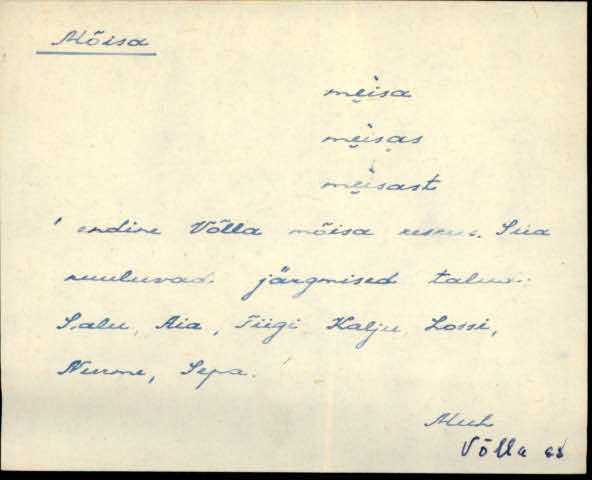 Mõisa
mẹisa
mẹisas
mẹisast
endine Võlla mõisa keskus. Siia
kuuluvad järgmised talud:
Salu, Aia, Tiigi Kalju, Lossi,
Nurme, Sepa.
Muh
Võlla 68